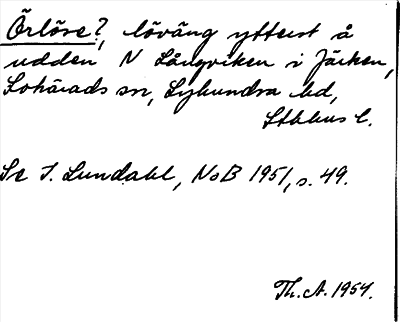 Örlöre?, löväng ytterst å
udden N Långviken i Järken,
Lohärads sn, Lyhundra hd,
Sthlms l.
Se I. Lundahl, NoB 1951, s. 49.
Th. A. 1954.